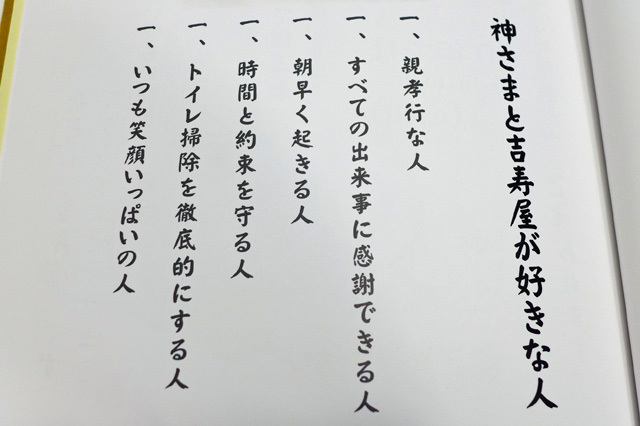 神さまと吉寿屋が好きな人
一、親孝行な人
一、すべての出来事に感謝できる人
一、朝早く起きる人
一、時間と約束を守る人
一、トイレ掃除を徹底的にする人
一、いつも笑顔いっぱいの人